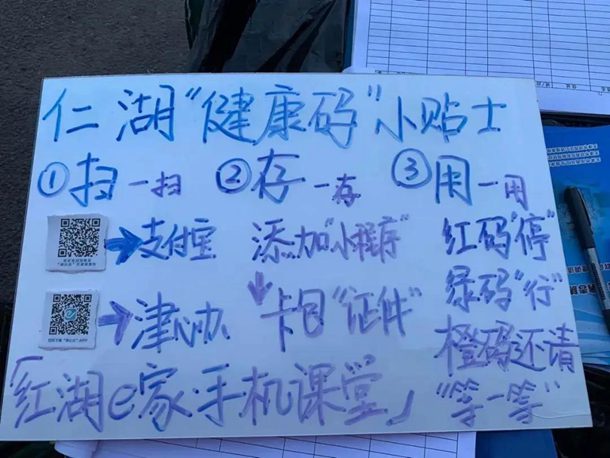 仁湖“健康码”小贴士
①扫一扫 ②存一存 ③用一用
→支付宝 添加“小程序” 红码“停”
绿码“行”
→津心办 卡包“证件” 橙码还请
“等一等”
「红湖e家·手机课堂」